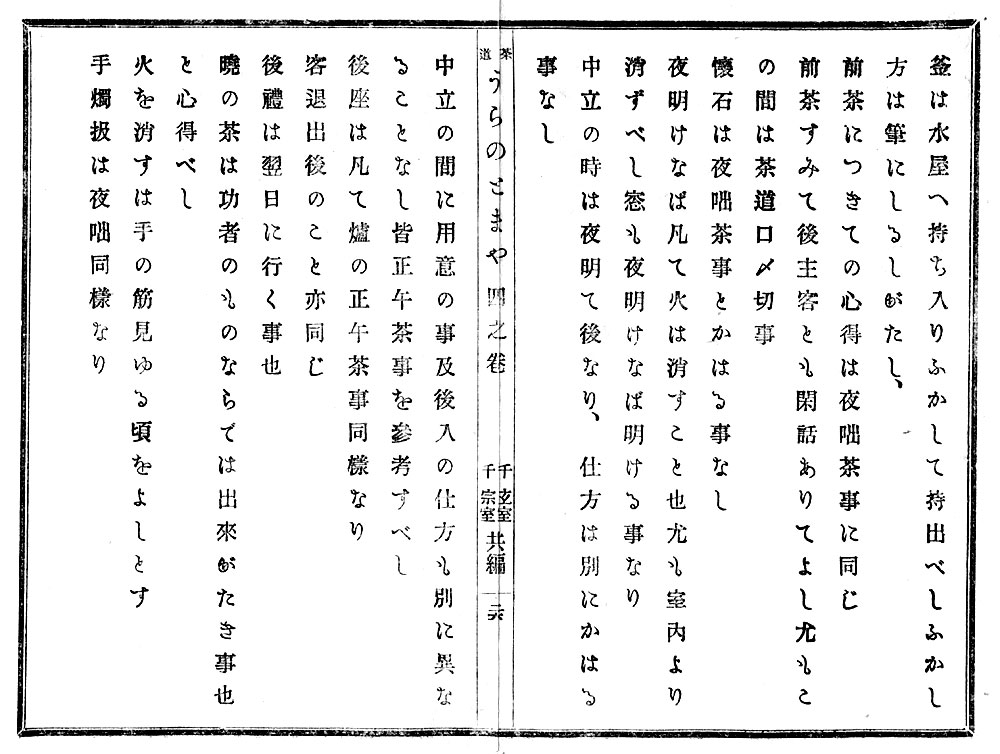 釜は水屋へ持ち入りふかして持出べしふかし
方は筆にしるしがたし、
前茶につきての心得は夜咄茶事に同じ
前茶すみて後主客とも閑話ありてよし尤もこ
の間は茶道口〆切事
懐石は夜咄茶事とかはる事なし
夜明けなば凡て火は消すこと也尤も室内より
消ずべし窓も夜明けなば明ける事なり
中立の時は夜明て後なり、仕方は別にかはる
事なし
茶道うらのとまや四之卷 千玄室千宗室共編 二六
中立の間に用意の事及後入の仕方も別に異な
ることなし皆正午茶事を參考すべし
後座は凡て爐の正午茶事同樣なり
客退出後のこと亦同じ
後禮は翌日に行く事也
曉の茶は功者のものならでは出來がたき事也
と心得べし
火を消すは手の筋見ゆる頃をよしとす
手燭扱は夜咄同樣なり